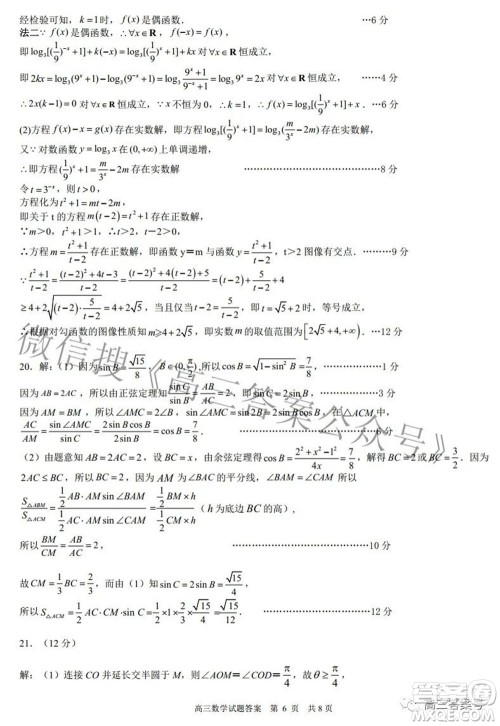 经检验可知，k=1时，f(x)是偶函数．  …6 分
法二∵ f(x)是偶函数，∴∀x∈R，f(x)=f(-x)，
即 log₃[(1/9)^x+1]+kx=log₃[(1/9)^(-x)+1]+k(-x)=log₃(9^x+1)-kx 对∀x∈R 恒成立，
即2kx=log₃(9^x+1)-log₃(9^(-x)+1)=log₃ (9^x+1)/(9^(-x)+1)=log₃9^x=2x 对∀x∈R 恒成立，  ……4 分
∴2x(k-1)=0 对∀x∈R 恒成立，∵x 不恒为 0，∴k=1，∴f(x)=log₃[(1/9)^x+1]+x．  …6 分
(2)方程 f(x)-x=g(x)存在实数解，即方程
又∵对数函数 y=log₃x 在(0,+∞)上单调递增，
∴即方程(1/9)^x+1=m/3^x-2m 存在实数解  ………………8 分
令 t=3^(-x)，则 t>0，
方程化为 t²+1=mt-2m，
即关于 t 的方程 m(t-2)=t²+1 存在正数解．
∵m>0，∴t-2>0，∴t>2，
∴方程 m=(t²+1)/(t-2) 存在正数解，即函数 y=m 与函数 y=(t²+1)/(t-2)，t>2 图像有交点．  ………9 分
∵(t²+1)/(t-2)=((t-2)²+4t-3)/(t-2)=((t-2)²+4(t-2)+5)/(t-2)=(t-2)+5/(t-2)+4
≥4+2√((t-2)·5/(t-2))=4+2√5，当且仅当 t-2=5/(t-2)，即 t=√5+2 时，等号成立，
∴根据对勾函数的图像性质知 m≥4+2√5，即实数 m 的取值范围为[2√5+4,+∞)．…12 分
20．解：（1）因为 sinB=√15/8，B∈(0,π/2)，所以cosB=√(1-sin²B)=7/8，
因为 AB=2AC，所以由正弦定理知 sinC/sinB=AB/AC=2，即 sinC=2sinB，
因为 AM=BM，所以∠AMC=2∠B，sin∠AMC=sin2B=2sinB cosB，在△AMC中，
AC/AM=sin∠AMC/sinC=2sinB cosB/2sinB=cosB=7/8．  ………………………6 分
（2）由题意知 AB=2AC=2，设 BC=x，由余弦定理得cosB=(2²+x²-1²)/4x=7/8，解得 BC=2或 BC=3/2．
因为 2AC≤BC，所以 BC=2，因为 AM 为∠BAC 的平分线，∠BAM=∠CAM 所以
S△ABM/S△ACM=(1/2 AB·AM sin∠BAM)/(1/2 AC·AM sin∠CAM)=(1/2 BM×h)/(1/2 CM×h)（h为底边 BC 的高），
所以 BM/CM=AB/AC=2，  ………………………10 分
故 CM=1/3 BC=2/3，而由（1）知 sinC=2sinB=√15/4，
所以 S△ACM=1/2 AC·CM·sinC=1/2×1×2/3×√15/4=√15/12．  ………………………12 分
21．（12 分）
解：（1）连接 CO 并延长交半圆于 M，则∠AOM=∠COD=π/4，故θ≥π/4，
高三数学试题答案 第 6 页 共 8 页
微信搜《高三答案公众号》
高三答案号